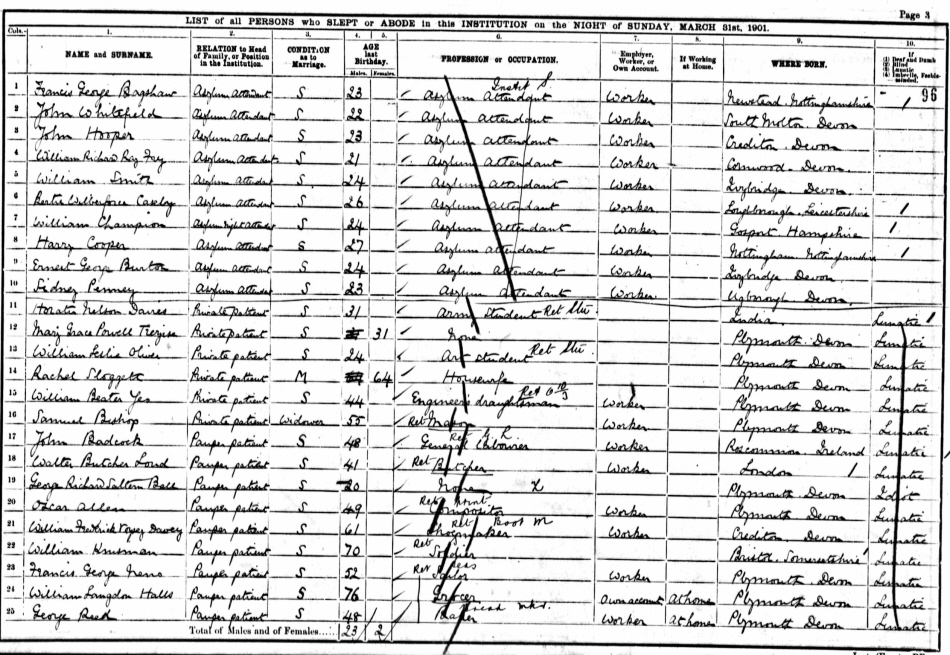 Page 3
LIST of all PERSONS who SLEPT or ABODE in this INSTITUTION on the NIGHT of SUNDAY, MARCH 31st, 1901.
Cols.— 1. 2. 3. 4. 5. 6. 7. 8. 9. 10.
NAME and SURNAME. RELATION to Head of Family, or Position in the Institution. CONDITION as to Marriage. AGE last Birthday. Males. Females. PROFESSION or OCCUPATION. Employer, Worker, or Own Account. If Working at Home. WHERE BORN. (1) Deaf and Dumb (2) Blind (3) Lunatic (4) Imbecile, Feeble-minded.
96
1 Francis George Bagshaw Asylum Attendant S 23 Asylum Attendant Worker Newstead Nottinghamshire
2 John Whitefield Asylum attendant S 22 Asylum Attendant Worker South Molton Devon
3 John Hooper Asylum attendant S 23 Asylum attendant Worker Crediton Devon
4 William Richard Fay Asylum attendant S 21 Asylum attendant Worker Cornwood Devon
5 William Smith Asylum attendant S 24 Asylum Attendant Worker Ivybridge Devon
6 Wilberforce Asylum attendant S 26 Asylum Attendant Worker Loughborough Leicestershire
7 William Champion Asylum night attendant S 24 Asylum attendant Worker Gosport Hampshire
8 Harry Cooper Asylum attendant S 27 Asylum attendant Worker Nottingham Nottinghamshire
9 Ernest George Burton Asylum attendant S 24 Asylum Attendant Worker Ivybridge Devon
10 Sidney Penney Asylum Attendant S 23 Asylum Attendant Worker Ugborough Devon
11 Horatio Nelson Davies Private patient S 31 Army Student India Lunatic
12 Mary Grace Powell Private patient S 31 None Plymouth Devon Lunatic
13 William Leslie Oliver Private patient S 24 Art student Plymouth Devon Lunatic
14 Rachel Sloggett Private patient M 64 Housewife Plymouth Devon Lunatic
15 William Private patient S 44 Engineers draughtsman Worker Plymouth Devon Lunatic
16 Samuel Bishop Private patient Widower 55 Ret Mason Worker Plymouth Devon Lunatic
17 John Badcock Pauper patient S 48 General Labourer Worker Roscommon Ireland Lunatic
18 Walter Butcher Pauper patient S 41 Ret Butcher Worker London Lunatic
19 George Richard Ball Pauper patient S 20 None X Plymouth Devon Idiot
20 Oscar Allen Pauper patient S 49 Compositor Worker Plymouth Devon Lunatic
21 William Fredrick Pauper patient S 61 Ret Boot M Shoemaker Worker Crediton Devon Lunatic
22 William Pauper patient S 70 Ret Soldier Bristol Somersetshire Lunatic
23 Francis George Pauper patient S 52 Ret Worker Plymouth Devon Lunatic
24 William Langdon Halls Pauper patient S 76 Grocer Own account At home Plymouth Devon Lunatic
25 George Pauper patient S 48 Baker Worker At home Plymouth Devon Lunatic
Total of Males and of Females...... 23 2